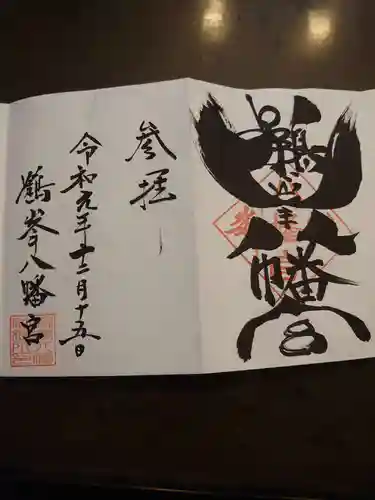 鶴峯八幡宮
参拝
令和元年十二月十五日
鶴峯八幡宮